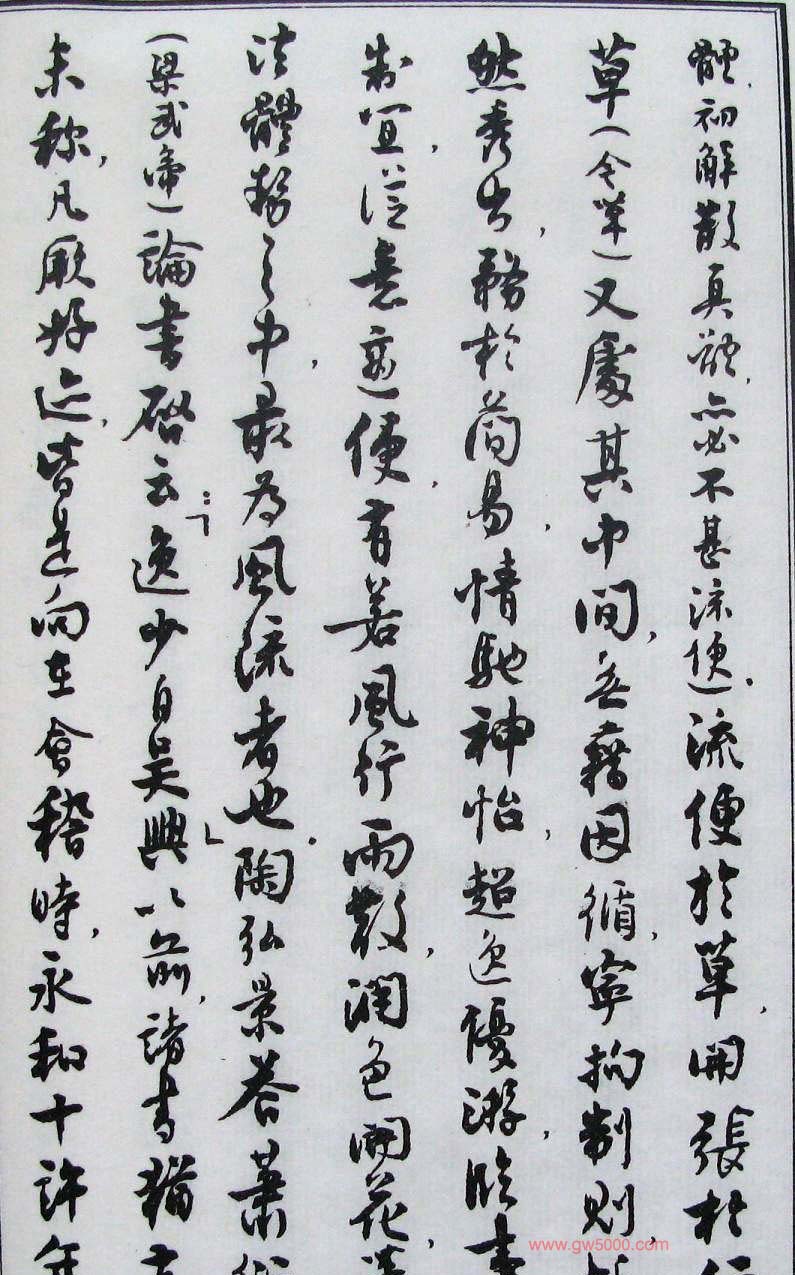 體,初解散真體,亦必不甚流便)流便於草,開張於
草(今草)又處其中間,無藉因循,寧拘制則,
然秀出,務於簡易,情馳神怡,超逸優游,臨事
制宜,從意適便,有若風行雨散,潤色開花,
法體勢之中,最為風流者也。陶弘景答蕭
(梁武帝)論書啟云:「逸少自吳興」以前,諸書猶
未稱,凡厥好迹,皆是向在會稽時,永和十許年
www.gw5000.com